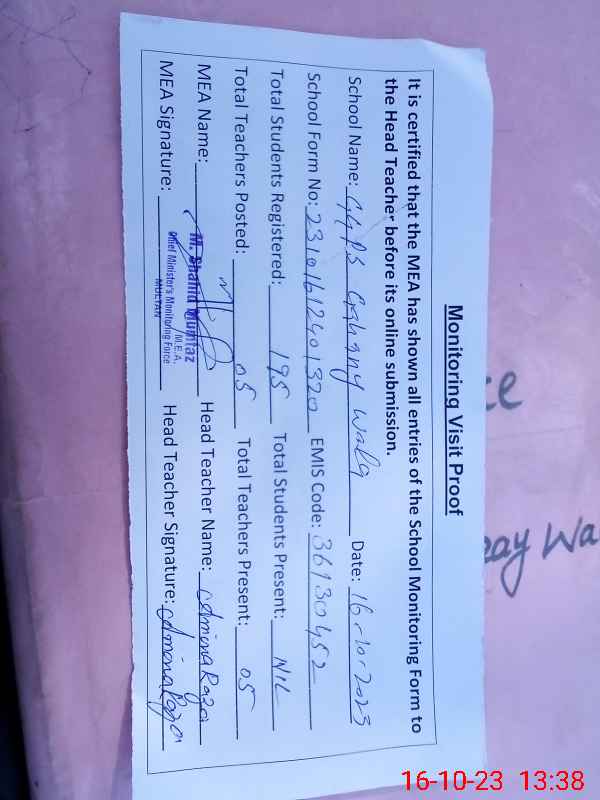 Monitoring Visit Proof
It is certified that the MEA has shown all entries of the School Monitoring Form to
the Head Teacher before its online submission.
School Name: GGPS Gahany Wala Date: 16-10-2023
School Form No: 23101612401320 EMIS Code: 36130452
Total Students Registered: 195 Total Students Present: NIL
Total Teachers Posted: 05 Total Teachers Present: 05
MEA Name: M. Shahid Mumtaz Head Teacher Name: Amina Raza
M.E.A.
Chief Minister's Monitoring Force
MULTAN
MEA Signature: Head Teacher Signature: Amina Raza
Wa
16-10-23 13:38